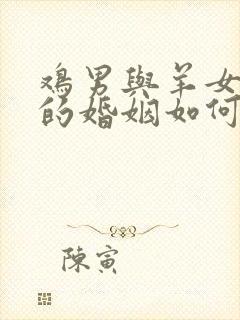 鸡男與羊女
的婚姻如何
陳寅